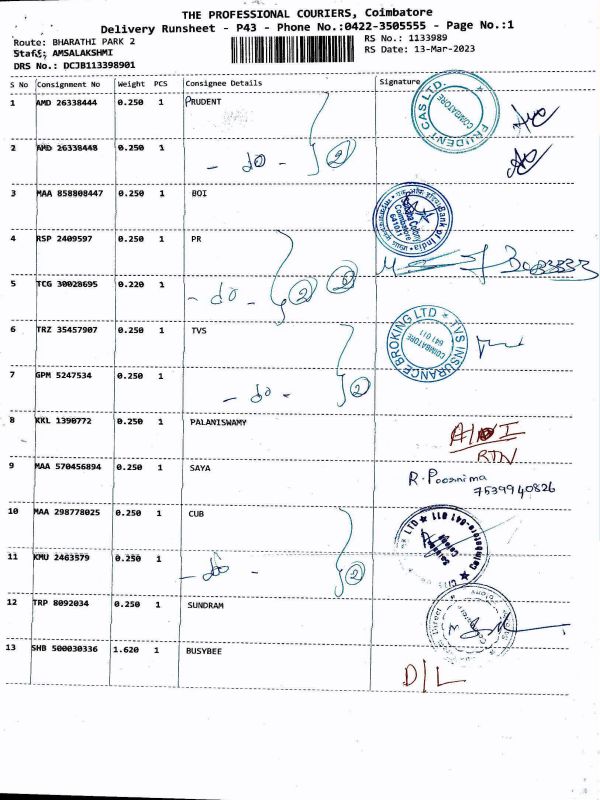 THE PROFESSIONAL COURIERS, Coimbatore
Delivery Runsheet - P43 - Phone No.:0422-3505555 - Page No.:1
Route: BHARATHI PARK 2 RS No.: 1133989
Staff: AMSALAKSHMI RS Date: 13-Mar-2023
DRS No.: DCJB113398901
S No Consignment No Weight PCS Consignee Details Signature
1 AMD 26338444 0.250 1 PRUDENT
PRUDENT CAS LTD. * COIMBATORE
2 AMD 26338448 0.250 1
- do - 2
3 MAA 858808447 0.250 1 BOI
Bank of India Coimbatore 641011
4 RSP 2409597 0.250 1 PR
5 TCG 30028695 0.220 1
- do - 2 2
6 TRZ 35457907 0.250 1 TVS
TVS INSURANCE BROKING LTD * COIMBATORE 641 011
7 GPM 5247534 0.250 1
- do - 2
8 KKL 1390772 0.250 1 PALANISWAMY
RTN
9 MAA 570456894 0.250 1 SAYA
R. Poornima
7539940826
10 MAA 298778025 0.250 1 CUB
Coimbatore-641 011
11 KMU 2463579 0.250 1
- do - 2
12 TRP 8092034 0.250 1 SUNDRAM
13 SHB 500030336 1.620 1 BUSYBEE
D/L